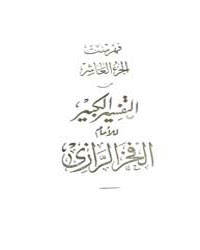 فهرست
الجزء العاشر
من
التفسير الكبير
للامام
الفخر الرازي